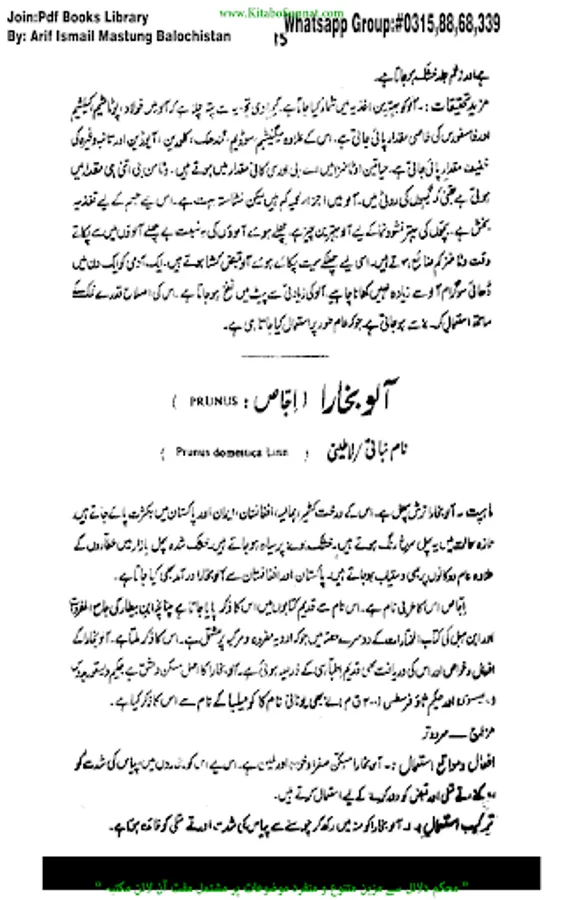 Join:Pdf Books Library
By: Arif Ismail Mastung Balochistan
www.KitaboSunnat.com
Whatsapp Group:#0315,88,68,339
۲۵
ہے اور زخم جلد خشک ہو جاتا ہے۔
مزید تحقیقات :۔ آلو کو بہترین اغذیہ میں شمار کیا جاتا ہے۔ سے پتہ چلا ہے کہ آلو میں فولاد، پوٹاشیم کیلشیم
اور فاسفورس کی خاصی مقدار پائی جاتی ہے، اس کے علاوہ میگنیشیم سوڈیم، گندھک، کلورین، آیوڈین اور تانبہ وغیرہ کی
خفیف مقدار پائی جاتی ہے۔ حیاتین اے بی اور سی کافی مقدار میں ہوتے ہیں۔ وٹامن بی اتنی ہی مقدار میں
ہوتی ہے جتنی کہ گیہوں کی روٹی میں۔ آلو میں اجزاء لحمیہ کم ہیں لیکن نشاستہ بہت ہے۔ اس لیے جسم کے لیے تغذیہ
بخش ہے۔ بچوں کی بہتر نشوونما کے لیے آلو بہترین چیز ہے۔ چھلے ہوئے آلوؤں کی بہ نسبت بے چھلے آلوؤں میں سے پکاتے
وقت وٹامنز کم ضائع ہوتے ہیں۔ اسی لیے چھلکے سمیت پکائے ہوئے آلو قبض کشا ہوتے ہیں۔ ایک آدمی کو ایک دن میں
ڈھائی سو گرام آلو سے زیادہ نہیں کھانا چاہیے۔ آلو کی زیادتی سے پیٹ میں نفخ ہو جاتا ہے۔ اس کی اصلاح قدرے نمک کے
ساتھ استعمال کرنے سے ہو جاتی ہے جو کہ عام طور پر استعمال کیا جاتا ہی ہے۔
آلو بخارا ( اجّاص : PRUNUS )
نام نباتی / لاطینی ( Prunus domestica Linn )
ماہیت ۔ آلو بخارا ترش پھل ہے۔ اس کے درخت کشمیر، ہمالیہ، افغانستان، ایران اور پاکستان میں بکثرت پائے جاتے ہیں۔
تازہ حالت میں یہ پھل سرخی رنگ ہوتے ہیں۔ خشک ہونے پر سیاہ ہو جاتے ہیں۔ خشک شدہ پھل بازار میں عطاروں کے
علاوہ عام دوکانوں پر بھی دستیاب ہو جاتے ہیں۔ پاکستان اور افغانستان سے آلو بخارا درآمد بھی کیا جاتا ہے۔
اجّاص اس کا عربی نام ہے۔ اس نام سے قدیم کتابوں میں اس کا ذکر پایا جاتا ہے چنانچہ ابن بیطار کی جامع المفردات
اور ابن ہبل کی کتاب المختارات کے دوسرے حصہ میں جو کہ ادویہ مفردہ و مرکبہ پر مشتمل ہے۔ اس کا ذکر ملتا ہے۔ آلو بخارا کے
افعال و خواص اور اس کی دریافت بھی قدیم اطبا ہی کے ذریعہ ہوئی ہے۔ آلو بخارا کا اصل مسکن دمشق ہے حکیم دیسقوریدوس
اور حکیم ثاؤ فرسطس (۳۰۰ ق م) نے بھی یونانی نام کا کومیلیا کے نام سے اس کا ذکر کیا ہے۔
مزاج — سرد و تر
افعال و مواقع استعمال :۔ آلو بخارا مسکن صفرا و خون اور ملین ہے۔ اس لیے اس کو بخاروں میں، پیاس کی شدت کو
روکنے متلی اور قبض کو دور کرنے کے لیے استعمال کرتے ہیں۔
ترکیب استعمال :۔ ۱۔ آلو بخارا کو منہ میں رکھ کر چوسنے سے پیاس کی شدت اور متلی کو فائدہ ہوتا ہے۔
" محکم دلائل سے مزین متنوع و منفرد موضوعات پر مشتمل مفت آن لائن مکتبہ "